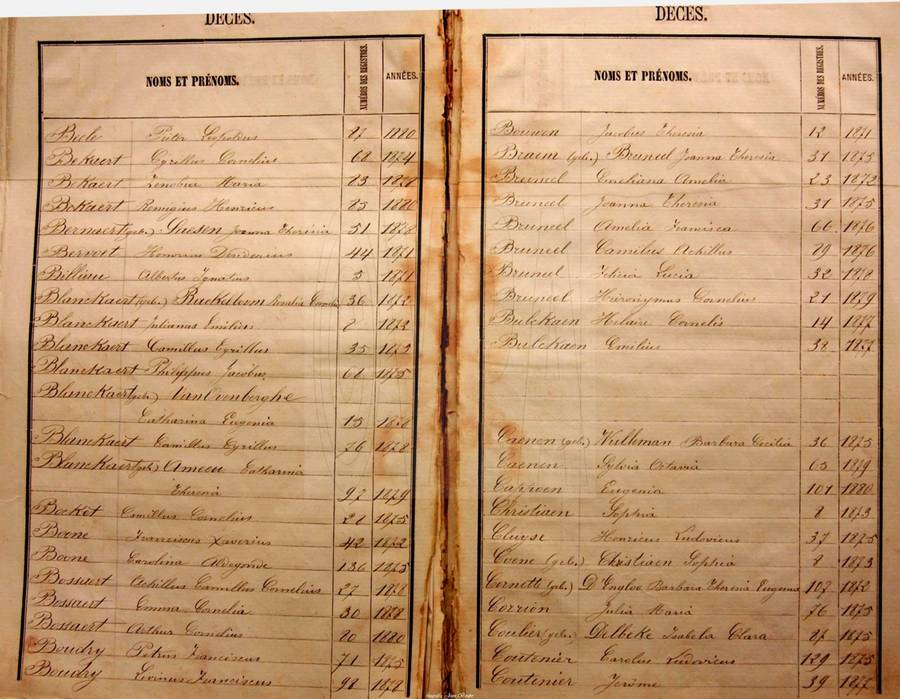 DÉCÈS.
NOMS ET PRÉNOMS. NUMÉROS DES REGISTRES. ANNÉES.
Pieter Leopoldus 1880
Bekaert Cyrillus Cornelius 68 1874
Bekaert Zenobia Maria 83
Bekaert Remigius Henricus 85 1880
Bernaert (geb.) Saesen Joanna Theresia 51 1878
Bervoet Honorius Desiderius 44 1871
Billiau Albertus Ignatius 5 1871
Blanckaert (geb.) 36 1872
Blanckaert Julianus Emilius 2 1873
Blanckaert Camillus Cyrillus 35 1873
Blanckaert Philippus Jacobus 1875
Blanckaert (geb.) VanOvenberghe
Catharina Eugenia 15 1878
Blanckaert Camillus Cyrillus 76 1878
Blanckaert (geb.) Catharina
Theresia 92 1879
Bocket Camillus Cornelius 1875
Boone Franciscus Xaverius 42 1872
Boone Carolina Aldegonde 136 1875
Bossaert Achillus Camillus Cornelius 27 1878
Bossaert Emma Cornelia 30 1878
Bossaert Arthur Cornelius 80 1880
Boudry Petrus Franciscus 71 1875
Boudry Livinus Franciscus 98 1878
DÉCÈS.
NOMS ET PRÉNOMS. NUMÉROS DES REGISTRES. ANNÉES.
Bouwen Jacobus Theresia 12 1871
Braem (geb.) Bruneel Joanna Theresia 31 1875
Bruneel Emeliana Amelia 23 1872
Bruneel Joanna Theresia 31 1875
Bruneel Amelia Francisca 66 1876
Bruneel Camilus Achillus 89 1876
Bruneel Felicia Lucia 32 1878
Bruneel Hieronymus Cornelius 21 1879
Bulckaen Helaire Cornelis 14 1877
Bulckaen Emilius 38 1877
Caenen (geb.) Hulleman Barbara Cecilia 36 1875
Caenen Sylvia Octavia 65 1879
Cappoen Eugenia 101 1880
Christiaen Sophia 8 1873
Cluyse Henricus Ludovicus 37 1875
Coene (geb.) Christiaen Sophia 8 1873
Cornette (geb.) Barbara Theresia Eugenia 107 1872
Corrion Julia Maria 76 1875
Coulier (geb.) Delbeke Isabela Clara 87 1875
Coutenier Carolus Ludovicus 129 1875
Coutenier Jerôme 39